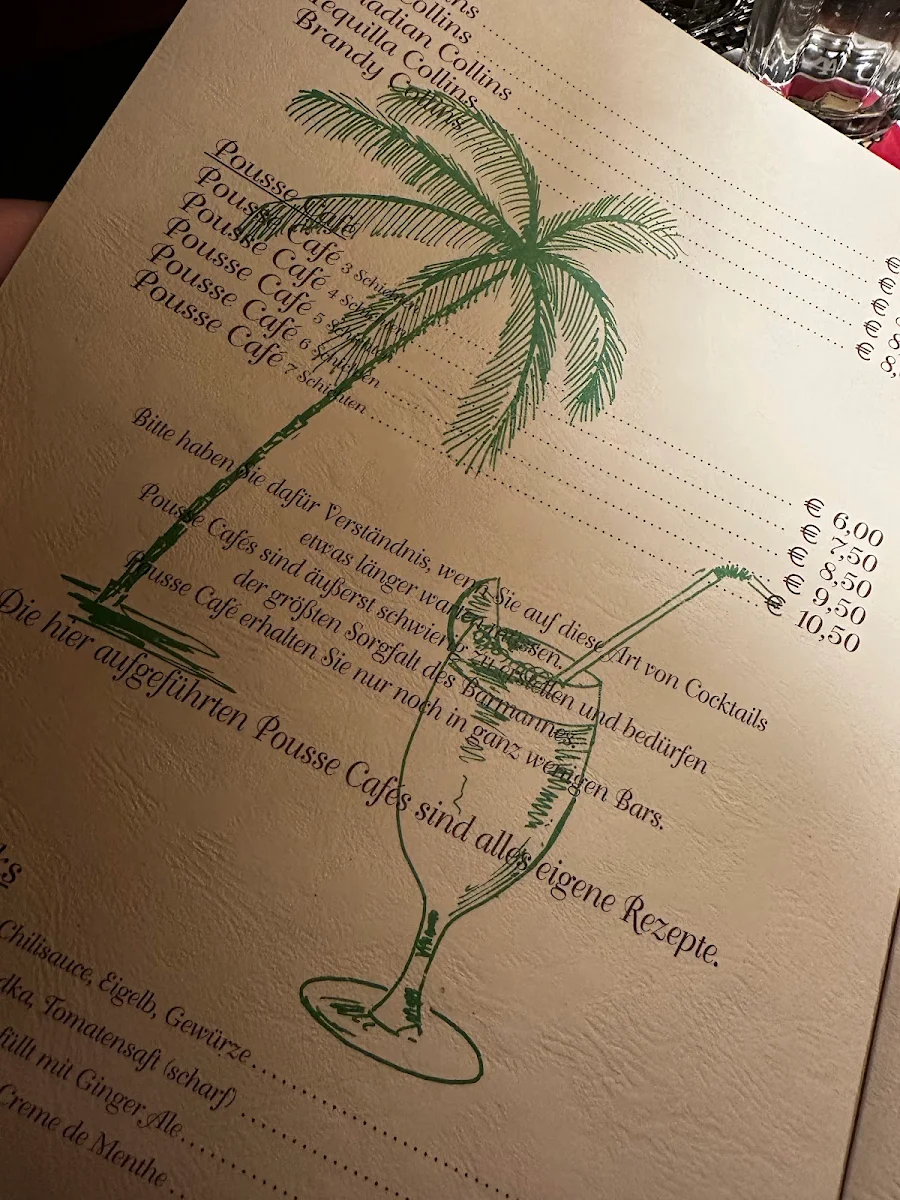 Collins
adian Collins
Tequilla Collins
Brandy Collins
€
€
€
€
€ 8,
Pousse Café
Pousse Café 3 Schichten € 6,00
Pousse Café 4 Schichten € 7,50
Pousse Café 5 Schichten € 8,50
Pousse Café 6 Schichten € 9,50
Pousse Café 7 Schichten € 10,50
Bitte haben Sie dafür Verständnis, wenn Sie auf diese Art von Cocktails
etwas länger warten müssen.
Pousse Cafés sind äußerst schwierig zu erstellen und bedürfen
der größten Sorgfalt des Barmannes.
Pousse Café erhalten Sie nur noch in ganz wenigen Bars.
Die hier aufgeführten Pousse Cafés sind alles eigene Rezepte.
ks
Chilisauce, Eigelb, Gewürze
dka, Tomatensaft (scharf)
füllt mit Ginger Ale
Creme de Menthe